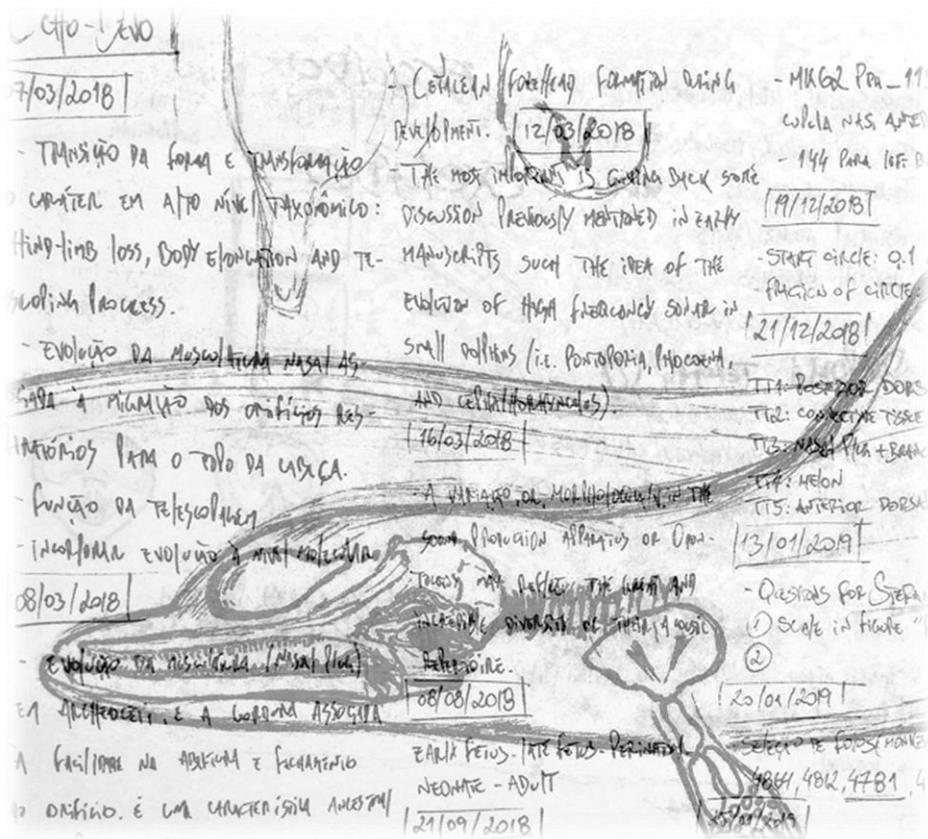 CHO-DEVO
7/03/2018
- TRANSIÇÃO DA FORMA E TRANSFORMAÇÃO
CARÁTER EM ALTO NÍVEL TAXONÔMICO:
HIND-LIMB LOSS, BODY ELONGATION AND TE-
SCOPING PROCESS.
- EVOLUÇÃO DA MUSCULATURA NASAL AS
À MIGRAÇÃO DOS ORIFÍCIOS RES-
IRATÓRIOS PARA O TOPO DA CABEÇA.
- FUNÇÃO DA TELESCOPAGEM
- INCORPORAR EVOLUÇÃO À NIVEL MOLECULAR
08/03/2018
- EVOLUÇÃO DA MUSCULATURA (NASAL PLUG)
EM ARCHEOCETI, E A GORDURA ASSOCIADA
A FACILIDADE NA ABERTURA E FECHAMENTO
O ORIFÍCIO. É UMA CARACTERÍSTICA ANCESTRAL
- CETACEAN FOREHEAD FORMATION DURING
DEVELOPMENT.
12/03/2018
- THE MOST IMPORTANT IS GIVING BACK SOME
DISCUSSION PREVIOUSLY MENTIONED IN EARLY
MANUSCRIPTS SUCH THE IDEA OF THE
EVOLUTION OF HIGH FREQUENCY SONAR IN
SMALL DOLPHINS (I.E. PONTOPORIA, PHOCOENA,
AND CEPHALORHYNCHUS).
16/03/2018
- A VARIAÇÃO OR MORPHOLOGICALLY IN THE
SOUND PRODUCTION APPARATUS OF ODON-
TOCETES MAY REFLECT THE GREAT AND
INCREDIBLE DIVERSITY OF THEIR ACOUSTIC
REPERTOIRE.
08/08/2018
EARLY FETUS - LATE FETUS - PERINATAL
NEONATE - ADULT
21/09/2018
- 144 PARA
19/12/2018
- START CIRCLE: 0.1
FRACTION OF CIRCLE:
21/12/2018
TT1: POSTERIOR DORS
TT2: CONNECTIVE TISSUE
TT3: NASAL PLUG + BRANC
TT4: MELON
TT5: ANTERIOR DORSA
13/01/2019
- QUESTIONS FOR STEFA
① SCALE IN FIGURE "
②
20/01/2019
- SELEÇÃO DE FOTOS
4864, 4812, 4781, 4
25/01/2019